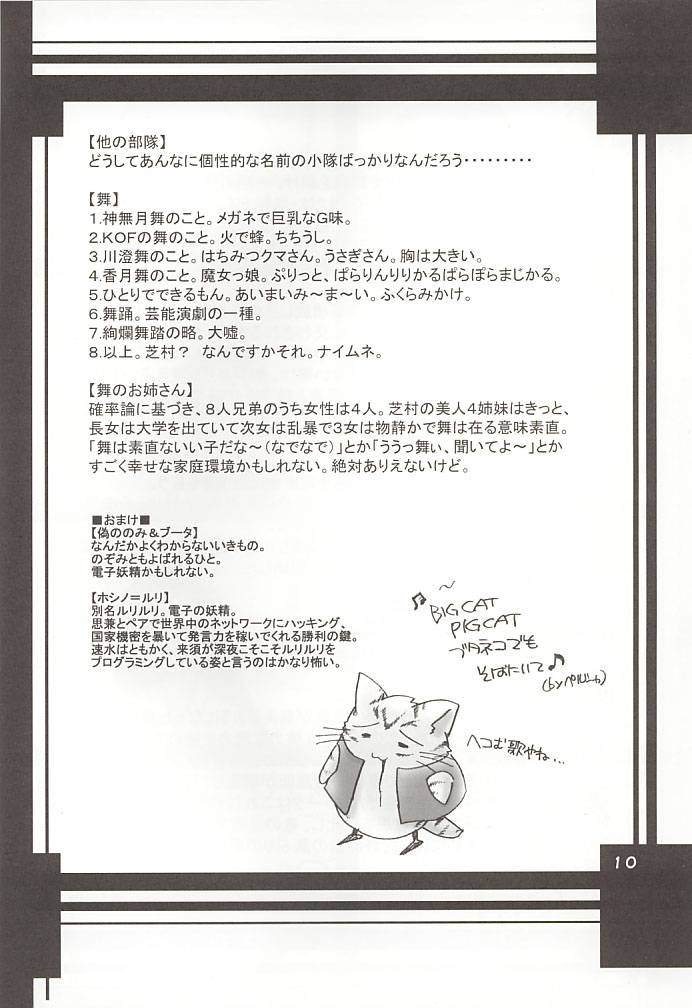 【他の部隊】
どうしてあんなに個性的な名前の小隊ばっかりなんだろう・・・・・・・・・
【舞】
1.神無月舞のこと。メガネで巨乳なG味。
2.KOFの舞のこと。火で蜂。ちちうし。
3.川澄舞のこと。はちみつクマさん。うさぎさん。胸は大きい。
4.香月舞のこと。魔女っ娘。ぷりっと、ぱらりんりりかるぱらぽらまじかる。
5.ひとりでできるもん。あいまいみ～ま～い。ふくらみかけ。
6.舞踊。芸能演劇の一種。
7.絢爛舞踏の略。大嘘。
8.以上。芝村？ なんですかそれ。ナイムネ。
【舞のお姉さん】
確率論に基づき、8人兄弟のうち女性は4人。芝村の美人4姉妹はきっと、
長女は大学を出ていて次女は乱暴で3女は物静かで舞は在る意味素直。
「舞は素直ないい子だな～(なでなで)」とか「ううっ舞ぃ、聞いてよ～」とか
すごく幸せな家庭環境かもしれない。絶対ありえないけど。
■おまけ■
【偽ののみ＆ブータ】
なんだかよくわからないいきもの。
のぞみともよばれるひと。
電子妖精かもしれない。
【ホシノ＝ルリ】
別名ルリルリ。電子の妖精。
思兼とペアで世界中のネットワークにハッキング、
国家機密を暴いて発言力を稼いでくれる勝利の鍵。
速水はともかく、来須が深夜こそこそルリルリを
プログラミングしている姿と言うのはかなり怖い。
♪ ～
BIG CAT
PIG CAT
ブタネコでも
そばにいて♪
(by ペルシャ)
ヘコむ歌やね…
10